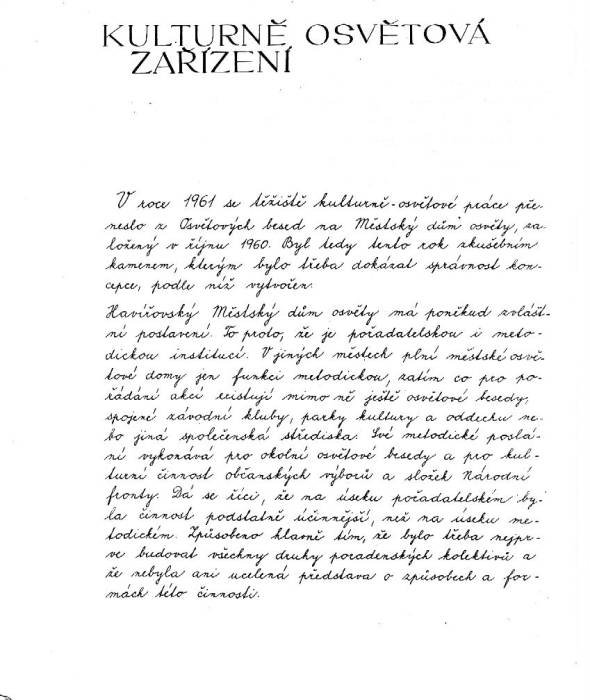 KULTURNĚ OSVĚTOVÁ
ZAŘÍZENÍ
V roce 1961 se těžiště kulturně-osvětové práce pře-
neslo z Osvětových besed na Městský dům osvěty, za-
ložený v říjnu 1960. Byl tedy tento rok zkušebním
kamenem, kterým bylo třeba dokázat správnost kon-
cepce, podle níž vytvořen.
Havířovský Městský dům osvěty má poněkud zvlášt-
ní postavení. To proto, že je pořadatelskou i meto-
dickou institucí. V jiných městech plní městské osvě-
tové domy jen funkci metodickou, zatím co pro po-
řádání akcí existují mimo ně ještě osvětové besedy,
spojené závodní kluby, parky kultury a oddechu ne-
bo jiná společenská střediska. Své metodické poslá-
ní vykonává pro okolní osvětové besedy a pro kul-
turní činnost občanských výborů a složek Národní
fronty. Dá se říci, že na úseku pořadatelském by-
la činnost podstatně účinnější, než na úseku me-
todickém. Způsobeno hlavně tím, že bylo třeba nejpr-
ve budovat všechny druhy poradenských kolektivů a
že nebyla ani ucelená představa o způsobech a for-
mách této činnosti.